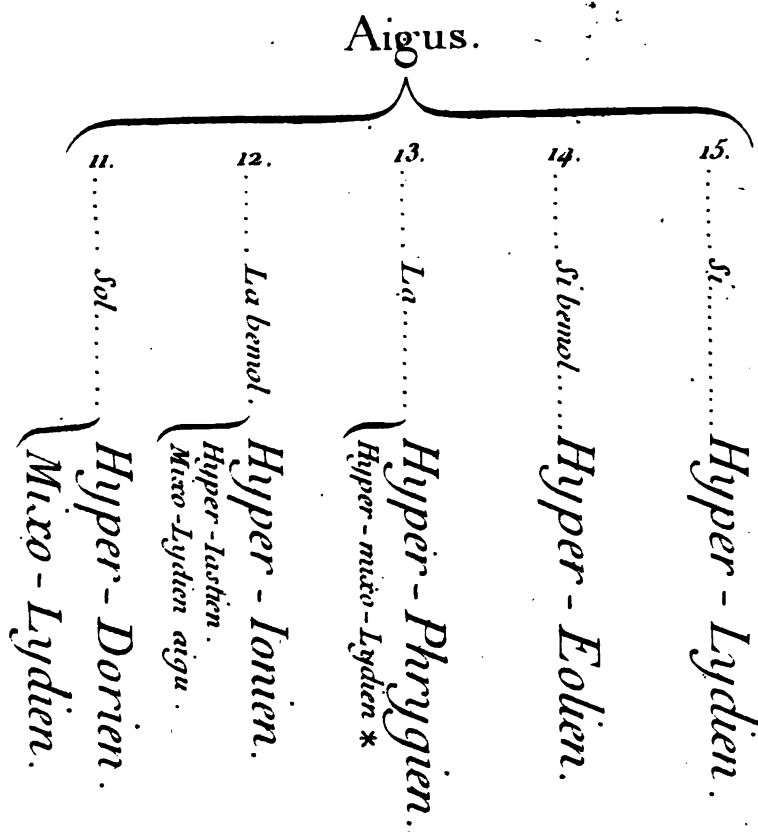 Aigus.
11. ....... Sol ........ Hyper-Dorien.
Mixo-Lydien.
12. ...... La bemol. Hyper-Ionien.
Hyper-Iastien.
Mixo-Lydien aigu.
13. ...... La .......... Hyper-Phrygien.
Hyper-mixo-Lydien *
14. ...... Si bemol ..... Hyper-Eolien.
15. ....... Si ........... Hyper-Lydien.